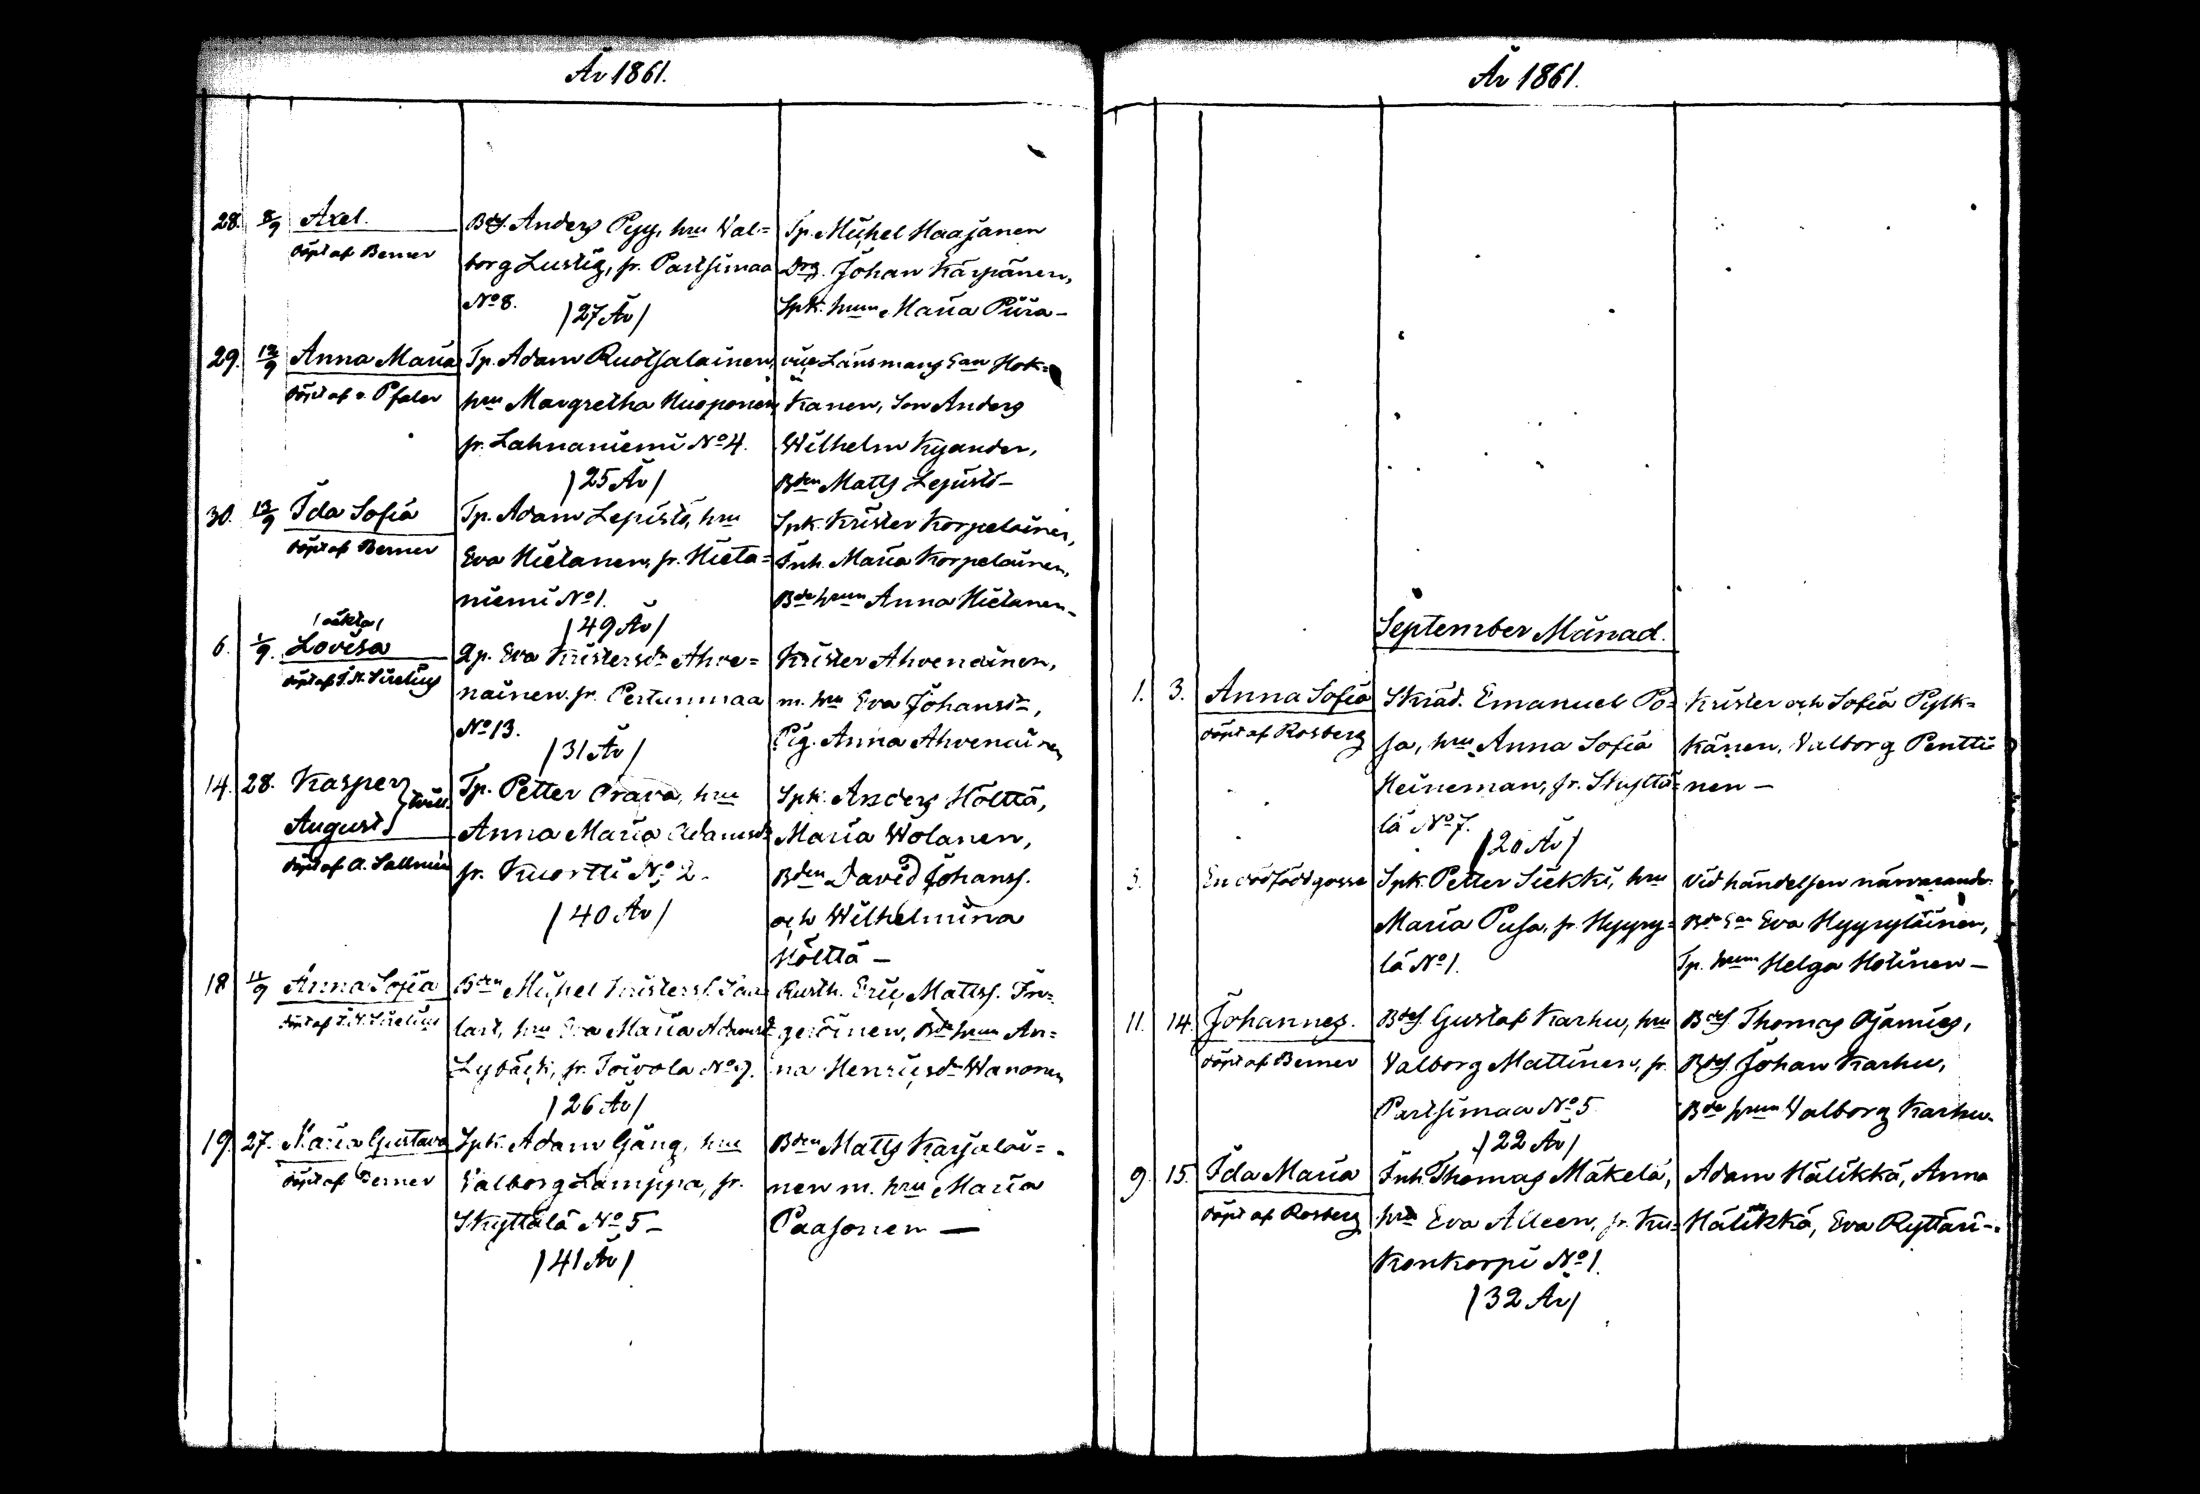 År 1861.
28. 8/9 Axel.
döpt af Berner
Bds. Anders Pyy, hru Val=
borg Lustig, fr. Partsimaa
No 8.
/27 År/
Tp. Michel Haajanen
Drg. Johan Kärpänen,
Spk. hrun Maria Piira-
29. 12/9 Anna Maria
döpt af v. Pfaler
Tp. Adam Ruotsalainen,
hru Margretha Huoponen,
fr. Lahnaniemi No 4.
/25 År/
vice Länsmans Enn Hok=
kanen, Son Anders
Wilhelm Kyander,
Bden Matts Lepistö-
30. 13/9 Ida Sofia
döpt af Berner
Tp. Adam Lepistö, hru
Eva Hietanen, fr. Hieta=
niemi No 1.
/49 År/
Spk. Krister Korpelainen,
Inh. Maria Korpelainen,
Bde hrun Anna Hietanen-
/oäkta/
6. 1/9. Lovisa
döpt af Sirelius
Qp. Eva Kristersdr Ahve=
nainen, fr. Pertunmaa
No 13.
/31 År/
Krister Ahvenainen,
m. hru Eva Johansdr,
Pig. Anna Ahvenainen
14. 28. Kasper
August } tvill.
döpt af A. Sallmén
Tp. Petter Orava, hru
Anna Maria Adamsdr
fr. Kuortti No 2.
/40 År/
Spk. Anders Hölttä,
Maria Wolanen,
Bden David Johanss.
och Wilhelmina
Hölttä -
18 11/9 Anna Sofia
döpt af Sirelius
Bden Michel Kristerss.
last, hru Eva Maria Adamsdr
Lybäck, fr. Toivola No 7.
/26 År/
Rusth. Eric Mattss. In=
geröinen, Bde hrun An=
na Henricsdr Wanonen
19. 27. Maria Gustava
döpt af Berner
Spk. Adam Gäng, hru
Valborg Lamppa, fr.
Skyttälä No 5-
/41 År/
Bden Matts Karjalai=
nen m. hru Maria
Paasonen —
År 1861.
September Månad.
1. 3. Anna Sofia
döpt af Rosberg
Skräd. Emanuel Po=
ja, hru Anna Sofia
Heineman, fr. Skyttä=
lä No 7.
/20 År/
Krister och Sofia Pylk=
känen, Valborg Pentti=
nen -
3. En dödfödd gosse
Spk. Petter Siekki, hru
Maria Pusa, fr. Hyyry=
lä No 1.
Vid händelsen närvarande
Bde En Eva Hyyryläinen,
Tp. hrun Helga Hotinen -
11. 14. Johannes.
döpt af Berner
Bds. Gustaf Karhu, hru
Valborg Mattinen, fr.
Partsimaa No 5
/22 År/
Bds. Thomas Ojanies,
Bds. Johan Karhu,
Bde hrun Valborg Karhu.
9. 15. Ida Maria
döpt af Rosberg
Inh. Thomas Mäkelä,
hru Eva Aileen, fr. Ku=
konkorpi No 1.
/32 År/
Adam Hälikkä, Anna
Hälikkä, Eva Ryttäri-.